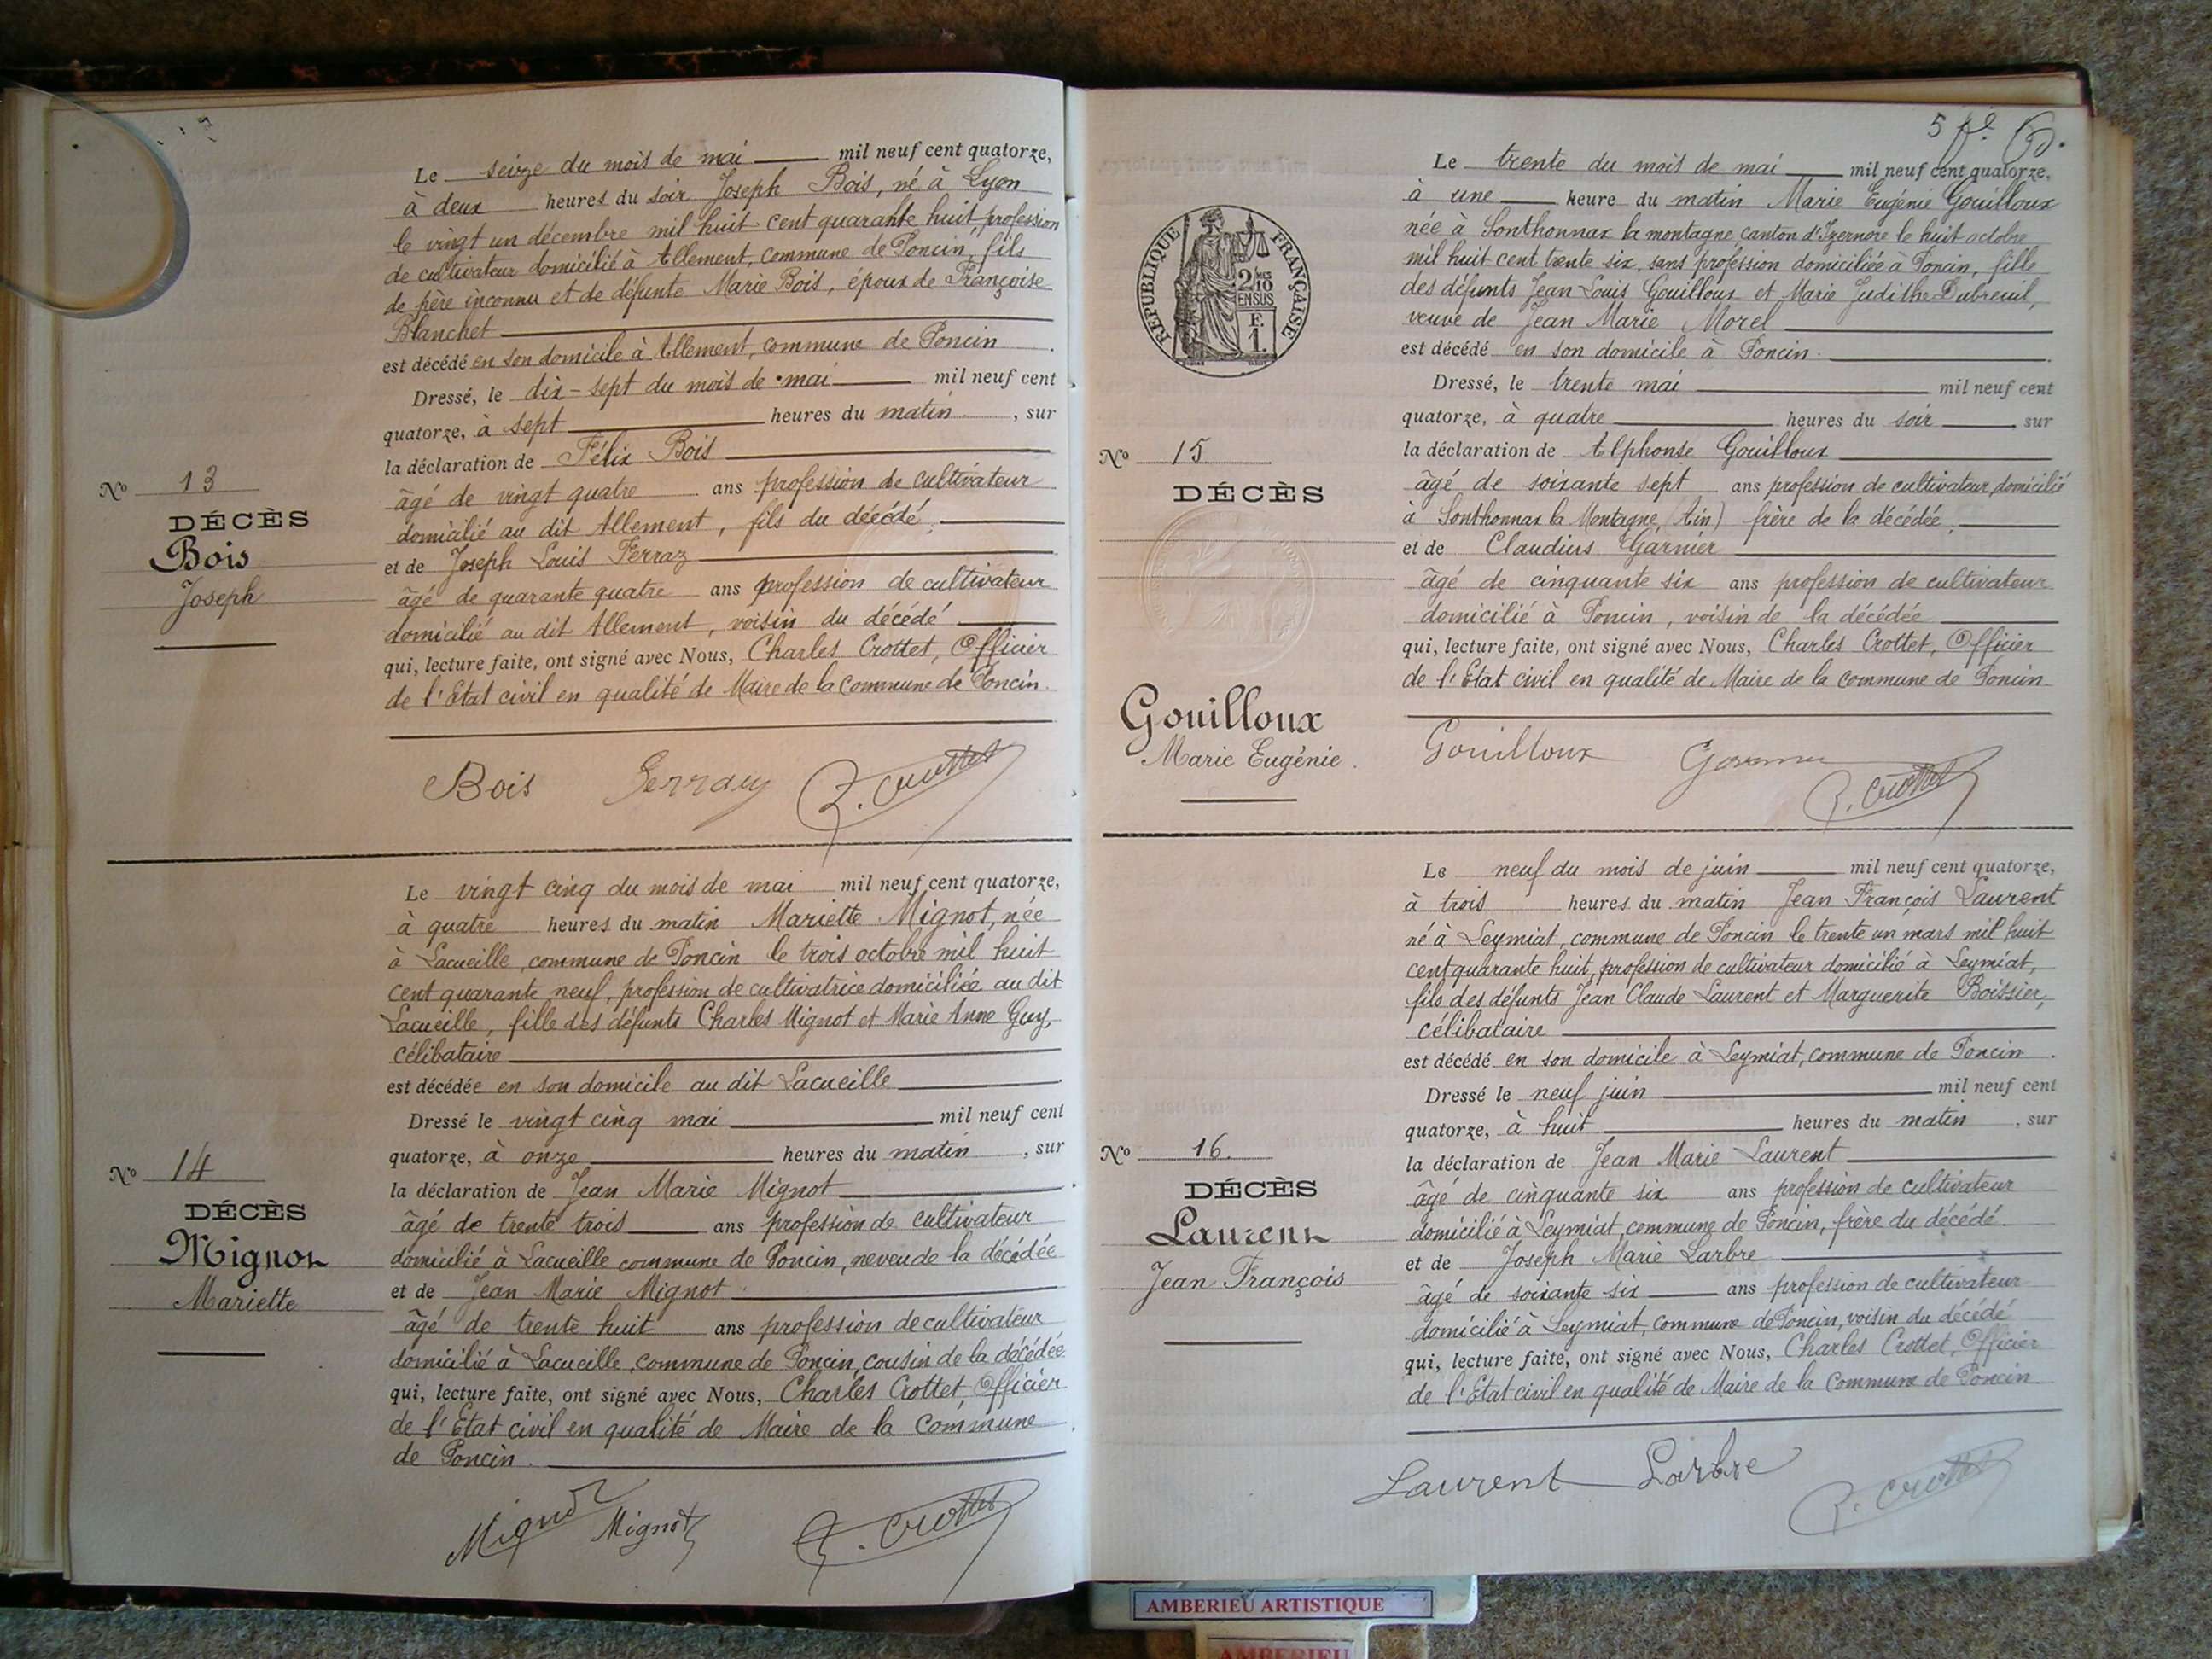 Le seize du mois de mai mil neuf cent quatorze,
à deux heures du soir Joseph Bois, né à Lyon
le vingt un décembre mil huit cent quarante huit, profession
de cultivateur domicilié à Allement, commune de Poncin, fils
de père inconnu et de défunte Marie Bois, époux de Françoise
Blanchet
est décédé en son domicile à Allement, commune de Poncin
Dressé, le dix-sept du mois de mai mil neuf cent
quatorze, à sept heures du matin, sur
la déclaration de Félix Bois
âgé de vingt quatre ans profession de cultivateur
domicilié au dit Allement, fils du décédé,
et de Joseph Louis Ferraz
âgé de quarante quatre ans profession de cultivateur
domicilié au dit Allement, voisin du décédé
qui, lecture faite, ont signé avec Nous, Charles Crottet, Officier
de l'Etat civil en qualité de Maire de la Commune de Poncin.
No 13
DÉCÈS
Bois
Joseph
Bois Ferraz C. Crottet
Le vingt cinq du mois de mai mil neuf cent quatorze,
à quatre heures du matin Mariette Mignot, née
à Lacueille, commune de Poncin le trois octobre mil huit
cent quarante neuf, profession de cultivatrice domiciliée au dit
Lacueille, fille des défunts Charles Mignot et Marie Anne Guy,
célibataire
est décédée en son domicile au dit Lacueille
Dressé le vingt cinq mai mil neuf cent
quatorze, à onze heures du matin, sur
la déclaration de Jean Marie Mignot
âgé de trente trois ans profession de cultivateur
domicilié à Lacueille commune de Poncin, neveu de la décédée
et de Jean Marie Mignot
âgé de trente huit ans profession de cultivateur
domicilié à Lacueille, commune de Poncin, cousin de la décédée
qui, lecture faite, ont signé avec Nous, Charles Crottet, Officier
de l'Etat civil en qualité de Maire de la Commune
de Poncin.
No 14
DÉCÈS
Mignot
Mariette
Mignot Mignot C. Crottet
5 fe
Le trente du mois de mai mil neuf cent quatorze,
à une heure du matin Marie Eugénie Gouilloux
née à Sonthonnax la montagne, canton d'Izernore le huit octobre
mil huit cent trente six, sans profession domiciliée à Poncin, fille
des défunts Jean Louis Gouilloux et Marie Judithe Dubreuil,
veuve de Jean Marie Morel
est décédé en son domicile à Poncin
Dressé, le trente mai mil neuf cent
quatorze, à quatre heures du soir sur
la déclaration de Alphonse Gouilloux
âgé de soixante sept ans profession de cultivateur, domicilié
à Sonthonnax la Montagne, (Ain) frère de la décédée,
et de Claudius Garnier
âgé de cinquante six ans profession de cultivateur
domicilié à Poncin, voisin de la décédée
qui, lecture faite, ont signé avec Nous, Charles Crottet, Officier
de l'Etat civil en qualité de Maire de la commune de Poncin
REPUBLIQUE FRANÇAISE
2/10 EN SUS
F. 1.
No 15
DÉCÈS
Gouilloux
Marie Eugénie.
Gouilloux C. Crottet
Le neuf du mois de juin mil neuf cent quatorze,
à trois heures du matin Jean François Laurent
né à Leymiat, commune de Poncin le trente un mars mil huit
cent quarante huit, profession de cultivateur domicilié à Leymiat,
fils des défunts Jean Claude Laurent et Marguerite Boissier,
célibataire
est décédé en son domicile à Leymiat, commune de Poncin.
Dressé le neuf juin mil neuf cent
quatorze, à huit heures du matin, sur
la déclaration de Jean Marie Laurent
âgé de cinquante six ans profession de cultivateur
domicilié à Leymiat, commune de Poncin, frère du décédé.
et de Joseph Marie Larbre
âgé de soixante six ans profession de cultivateur
domicilié à Leymiat, commune de Poncin, voisin du décédé
qui, lecture faite, ont signé avec Nous, Charles Crottet, Officier
de l'Etat civil en qualité de Maire de la Commune de Poncin
No 16.
DÉCÈS
Laurent
Jean François
Laurent Larbre C. Crottet
AMBERIEU ARTISTIQUE
AMBERIEU